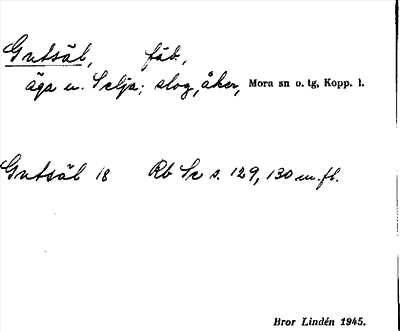 Gutsäl, fäb.,
äga u. Selja; slog, åker, Mora sn o. tg, Kopp. l.
Gutsäl 18 Rb Se s. 129, 130 m.fl.
Bror Lindén 1945.